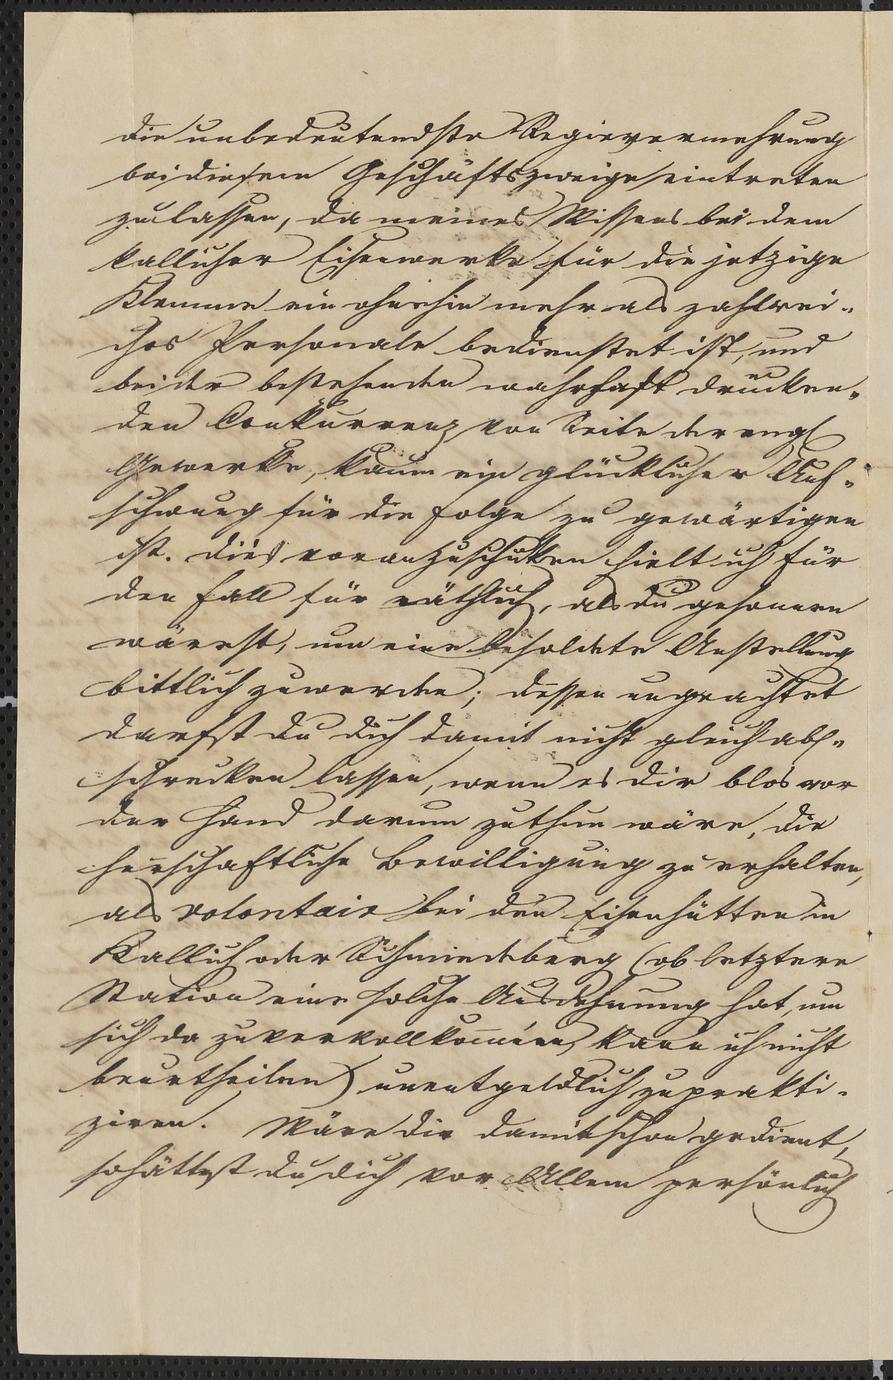 die unbedeutendste Regievermehrung
bei diesem Geschäftszweige eintreten
zu lassen, da meines Wissens bei dem
kallicher Eisenwerke für die jetzige
Klemme ein ohnehin mehr als zahlrei-
ches Personale bedienstet ist, und
bei der bestehenden wahrhaft drücken-
den Conkurrenz von Seite der engl
Gewerke, kaum ein glücklicher Auf-
schwung für die Folge zu gewärtigen
ist. Dies voranzuschicken hielt ich für
den Fall für räthlich, als du gesonnen
wärest, um eine besoldete Anstellung
bittlich zu werden; dessen ungeachtet
darfst du dich damit nicht gleich ab-
schrecken lassen, wenn es dir blos vor
der Hand darum zu thun wäre, die
herschaftliche Bewilligung zu erhalten,
als volontair bei den Eisenhütten in
Kallich oder Schmiedeberg (ob letztere
Station eine solche Ausdehnung hat, um
sich da zu vervollkom̅nen, kann ich nicht
beurtheilen) unentgeldlich zu prakti-
ziren. Wäre dir damit schon gedient,
so hättest du dich vor Allem persönlich